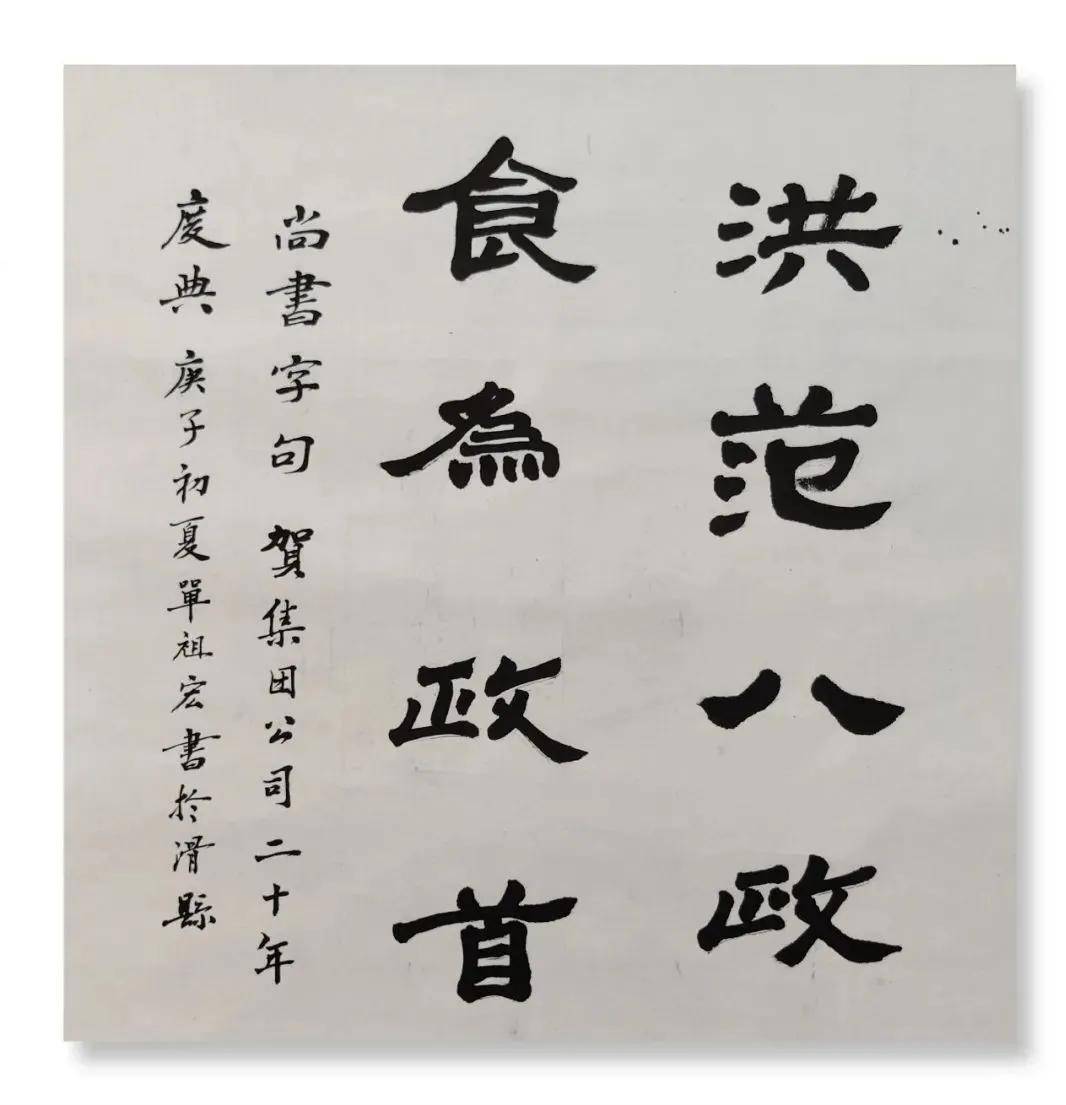 洪范八政
食為政首
尚書字句 賀集団公司二十年
度典 庚子初夏單祖宏書於滑縣